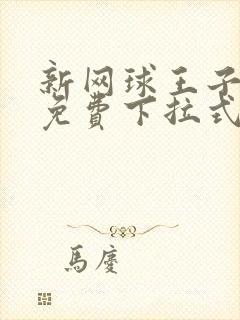 新网球王子
免费下拉式
馬慶